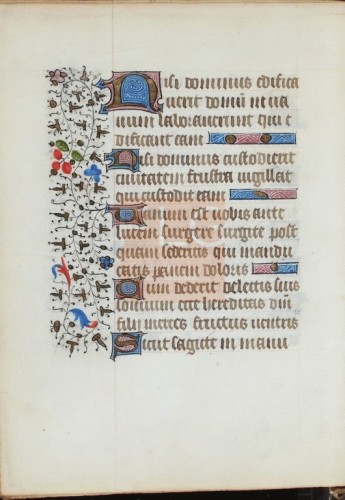 Nisi dominus edifica
uerit domū ne ua
num laborauerunt qui e
dificant eam
Nisi dominus custodierit
ciuitatem frustra uigilat
qui custodit eam
Uanum est uobis ante
lucem surgere surgite post
quam sederitis qui mandu
catis panem doloris
Cum dederit delectis suis
sompnum ecce hereditas dn̄i
filii merces fructus uentris
Sicut sagitte in manu